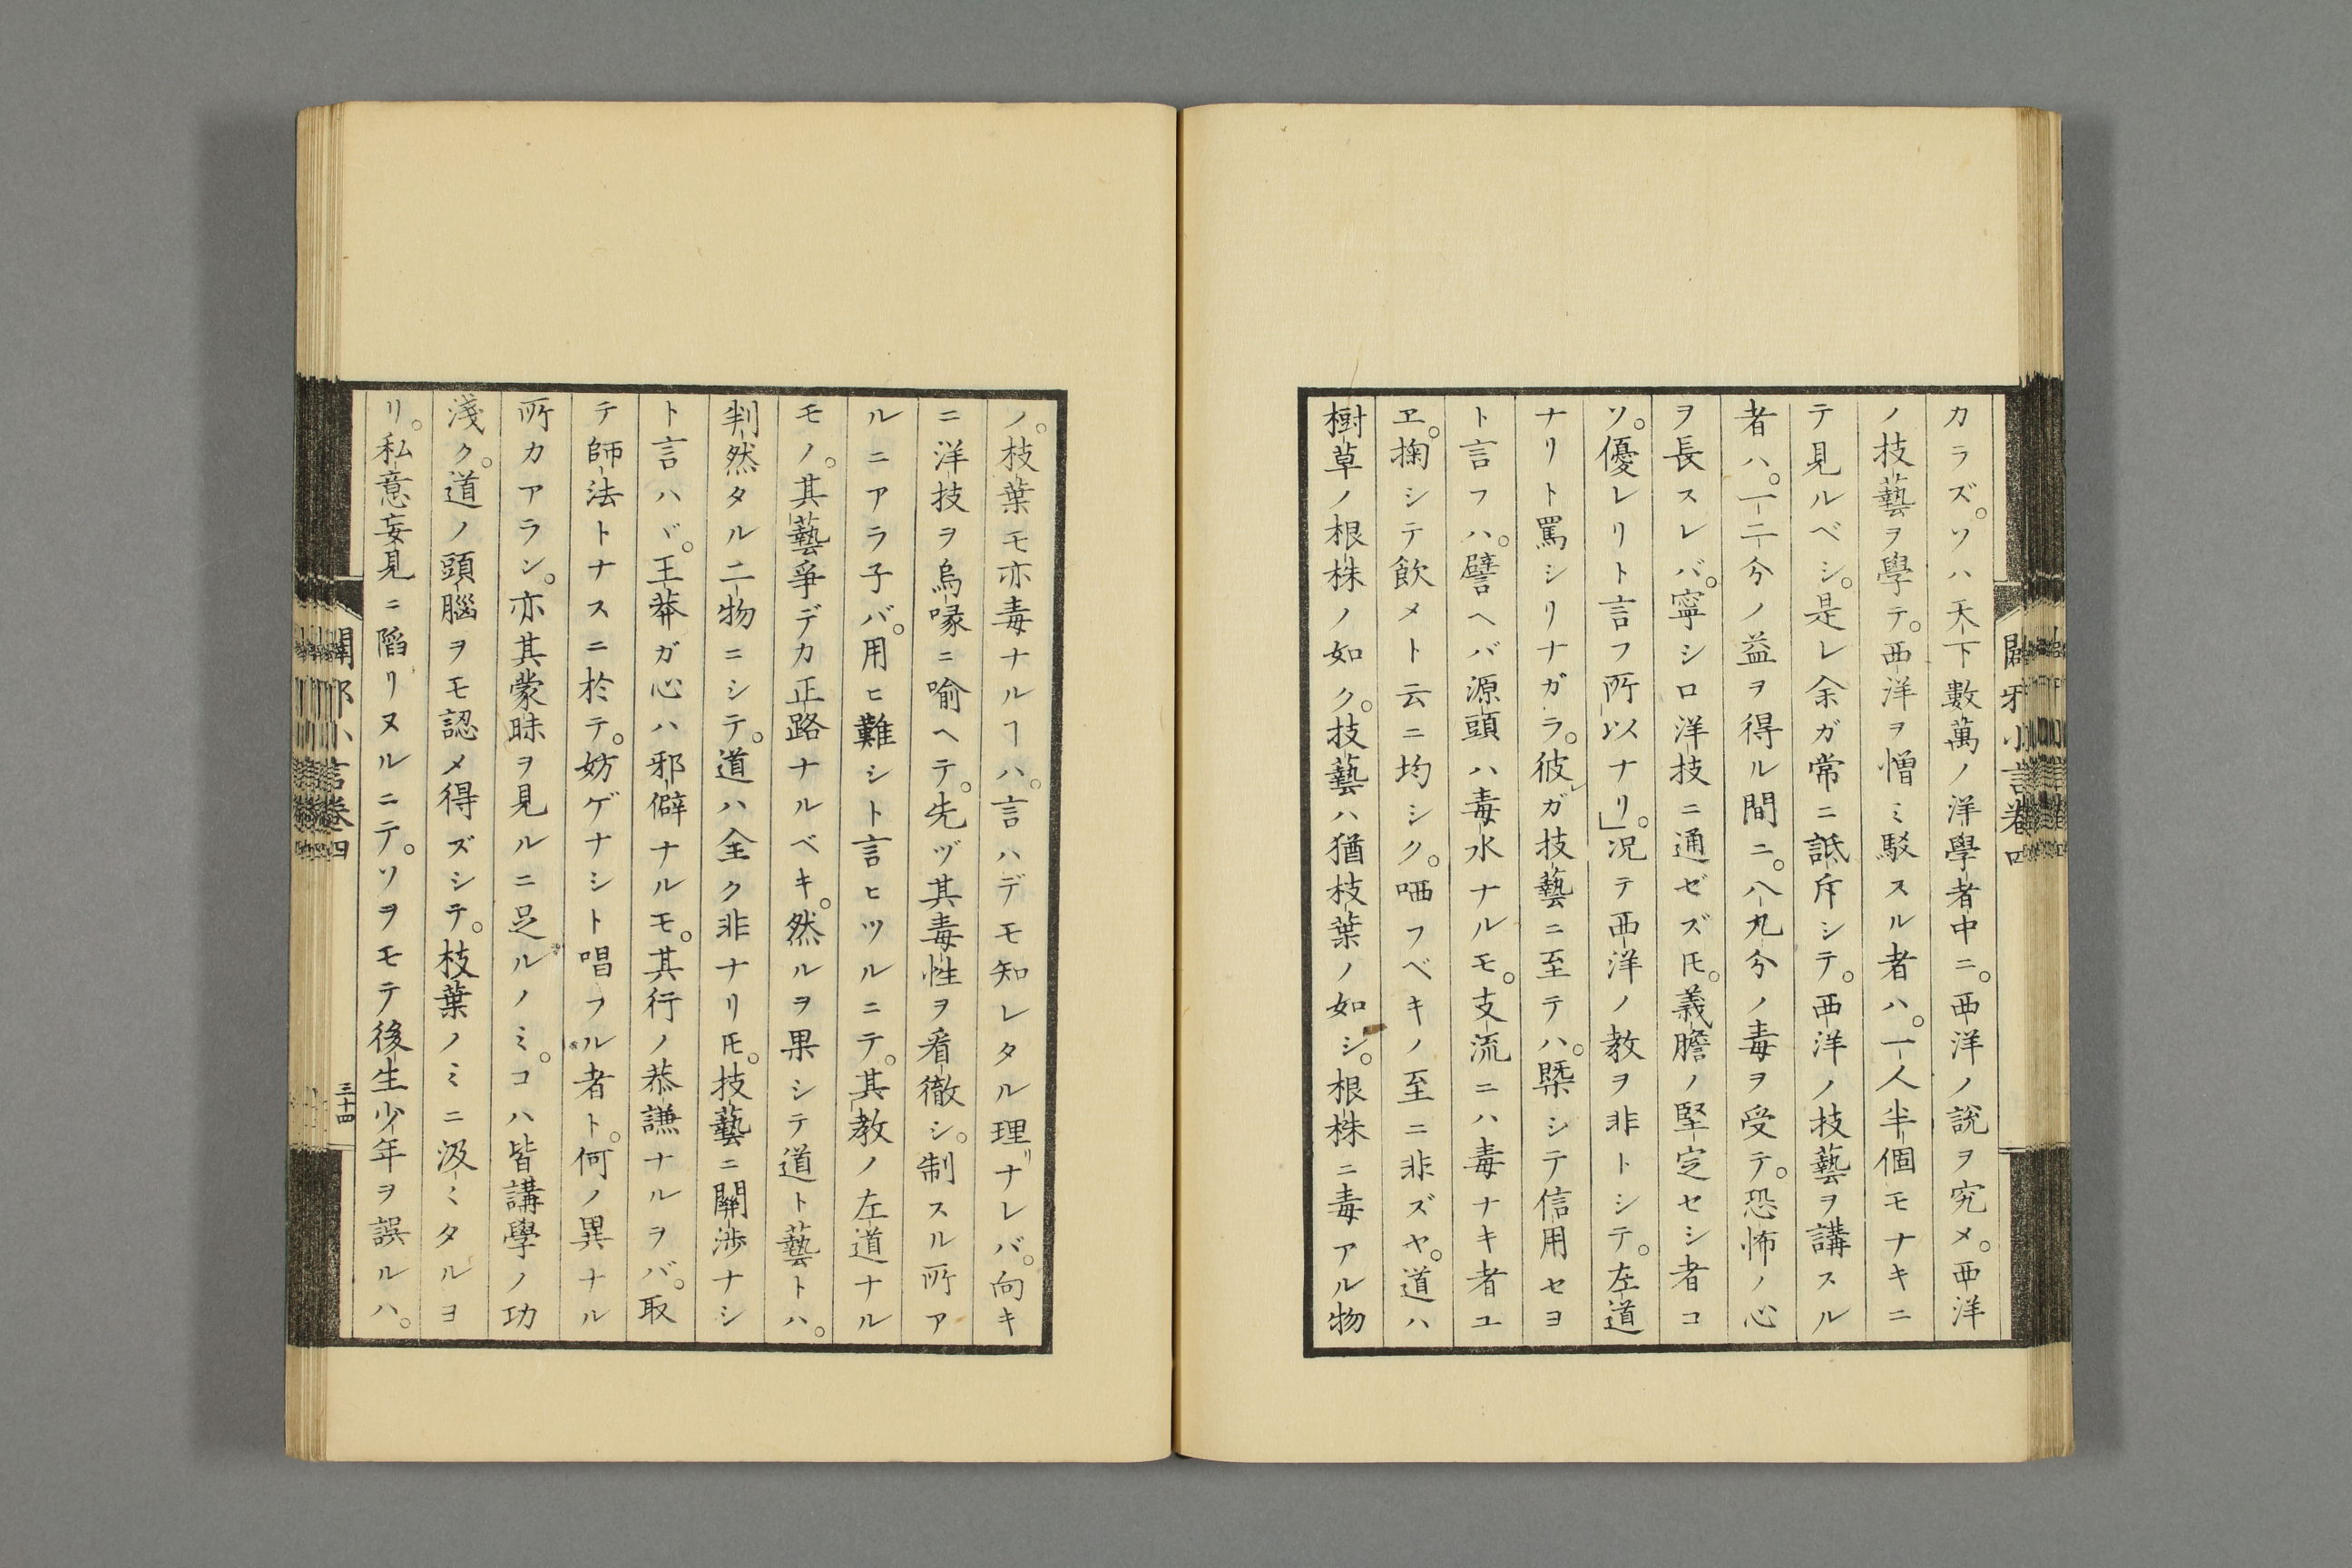 カラズ。ソハ天下數萬ノ洋學者中ニ。西洋ノ說ヲ究メ。西洋
ノ技藝ヲ學テ。西洋ヲ憎ミ駁スル者ハ。一人半個モナキニ
テ見ルベシ。是レ余ガ常ニ詆斥シテ。西洋ノ技藝ヲ講スル
者ハ。一二分ノ益ヲ得ル間ニ。八九分ノ毒ヲ受テ。恐怖ノ心
ヲ長スレバ。寧シロ洋技ニ通ゼズ𪜈。義膽ノ堅定セシ者コ
ソ。優レリト言フ所以ナリ」。況テ西洋ノ教ヲ非トシテ。左道
ナリト罵シリナガラ。彼ガ技藝ニ至テハ。槩シテ信用セヨ
ト言フハ。譬ヘバ源頭ハ毒水ナルモ。支流ニハ毒ナキ者ユ
ヱ。掬シテ飲メト云ニ均シク。哂フベキノ至ニ非ズヤ。道ハ
樹草ノ根株ノ如ク。技藝ハ猶枝葉ノ如シ。根株ニ毒アル物
ノ。枝葉モ亦毒ナルヿハ。言ハデモ知レタル理リナレバ。向キ
ニ洋技ヲ烏喙ニ喻ヘテ。先ヅ其毒性ヲ看徹シ。制スル所ア
ルニアラ子バ。用ヒ難シト言ヒツルニテ。其教ノ左道ナル
モノ。其藝爭デカ正路ナルベキ。然ルヲ果シテ道ト藝トハ。
判然タル二物ニシテ。道ハ全ク非ナリ𪜈。技藝ニ關涉ナシ
ト言ハヾ。王莽ガ心ハ邪僻ナルモ。其行ノ恭謙ナルヲバ。取
テ師法トナスニ於テ。妨ゲナシト唱フル者ト。何ノ異ナル
所カアラン。亦其蒙昧ヲ見ルニ足ルノミ。コハ皆講學ノ功
淺ク。道ノ頭腦ヲモ認メ得ズシテ。枝葉ノミニ汲ミタルヨ
リ。私意妄見ニ陷リヌルニテ。ソヲモテ後生少年ヲ誤ルハ。
闢邪小言卷四
三十四